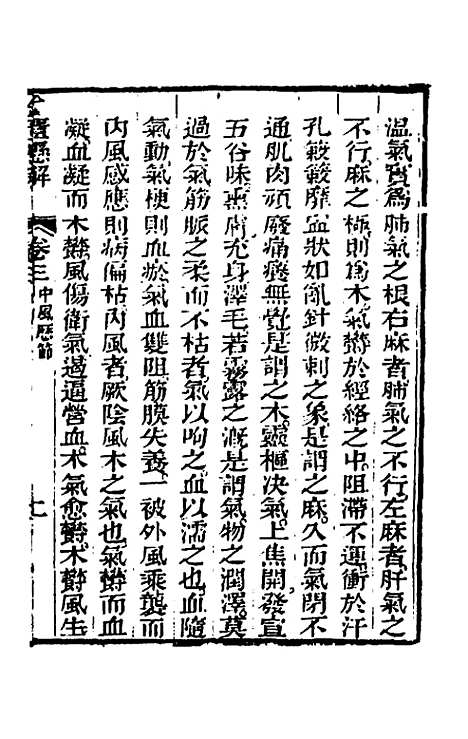 溫氣實爲肺氣之根右麻者肺氣之不行左麻者肝氣之
不行麻之極則爲木氣鬱於經絡之中阻滯不運衝於汗
孔簌簌靡寍狀如亂針微刺之象是謂之麻久而氣閉不
通肌肉頑廢痛癢無覺是謂之木靈樞決氣上焦開發宣
五谷味熏膚充身澤毛若霧露之溉是謂氣物之潤澤莫
過於氣筋脈之柔而不枯者氣以呴之血以濡之也血隨
氣動氣梗則血瘀氣血雙阻筋膜失養一被外風乘襲而
內風感應則病偏枯內風者厥陰風木之氣也氣鬱而血
凝血凝而木鬱風傷衛氣遏逼營血木氣愈鬱木鬱風生
金匱懸解
卷三
中風歷節
七